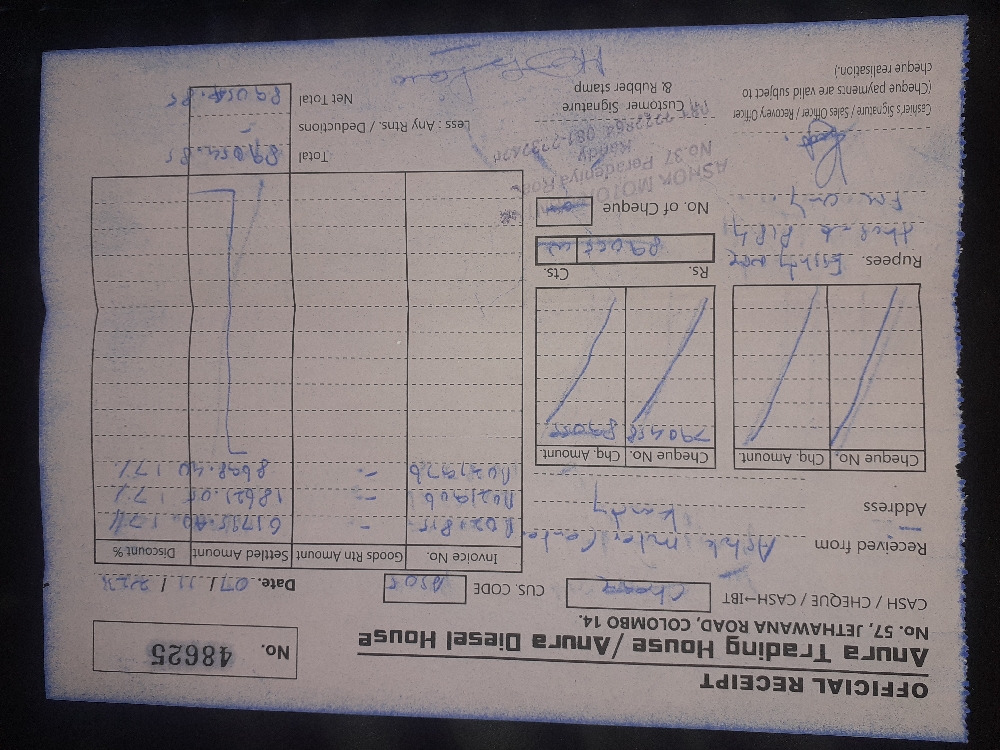 OFFICIAL RECEIPT
Anura Trading House / Anura Diesel House
No. 57, JETHAWANA ROAD, COLOMBO 14.
No. 48625
CASH / CHEQUE / CASH-IBT
CUS. CODE
Date. 07 / 11 /
Received from Ashok Motor
Address Kandy
Cheque No. Chq. Amount Cheque No. Chq. Amount
790458
Rs. Cts.
Rupees. Eighty nine
Five only
No. of Cheque
Invoice No. Goods Rtn Amount Settled Amount Discount %
61735.40 17%
18621.05 17%
8698.40 17%
Total 89054.85
Less : Any Rtns. / Deductions -
Net Total 89054.85
ASHOK MOTOR
No.37 Peradeniya Road
Kandy
Cashier's Signature / Sales Officer / Recovery Officer
(Cheque payments are valid subject to
cheque realisation.)
Customer Signature
& Rubber stamp